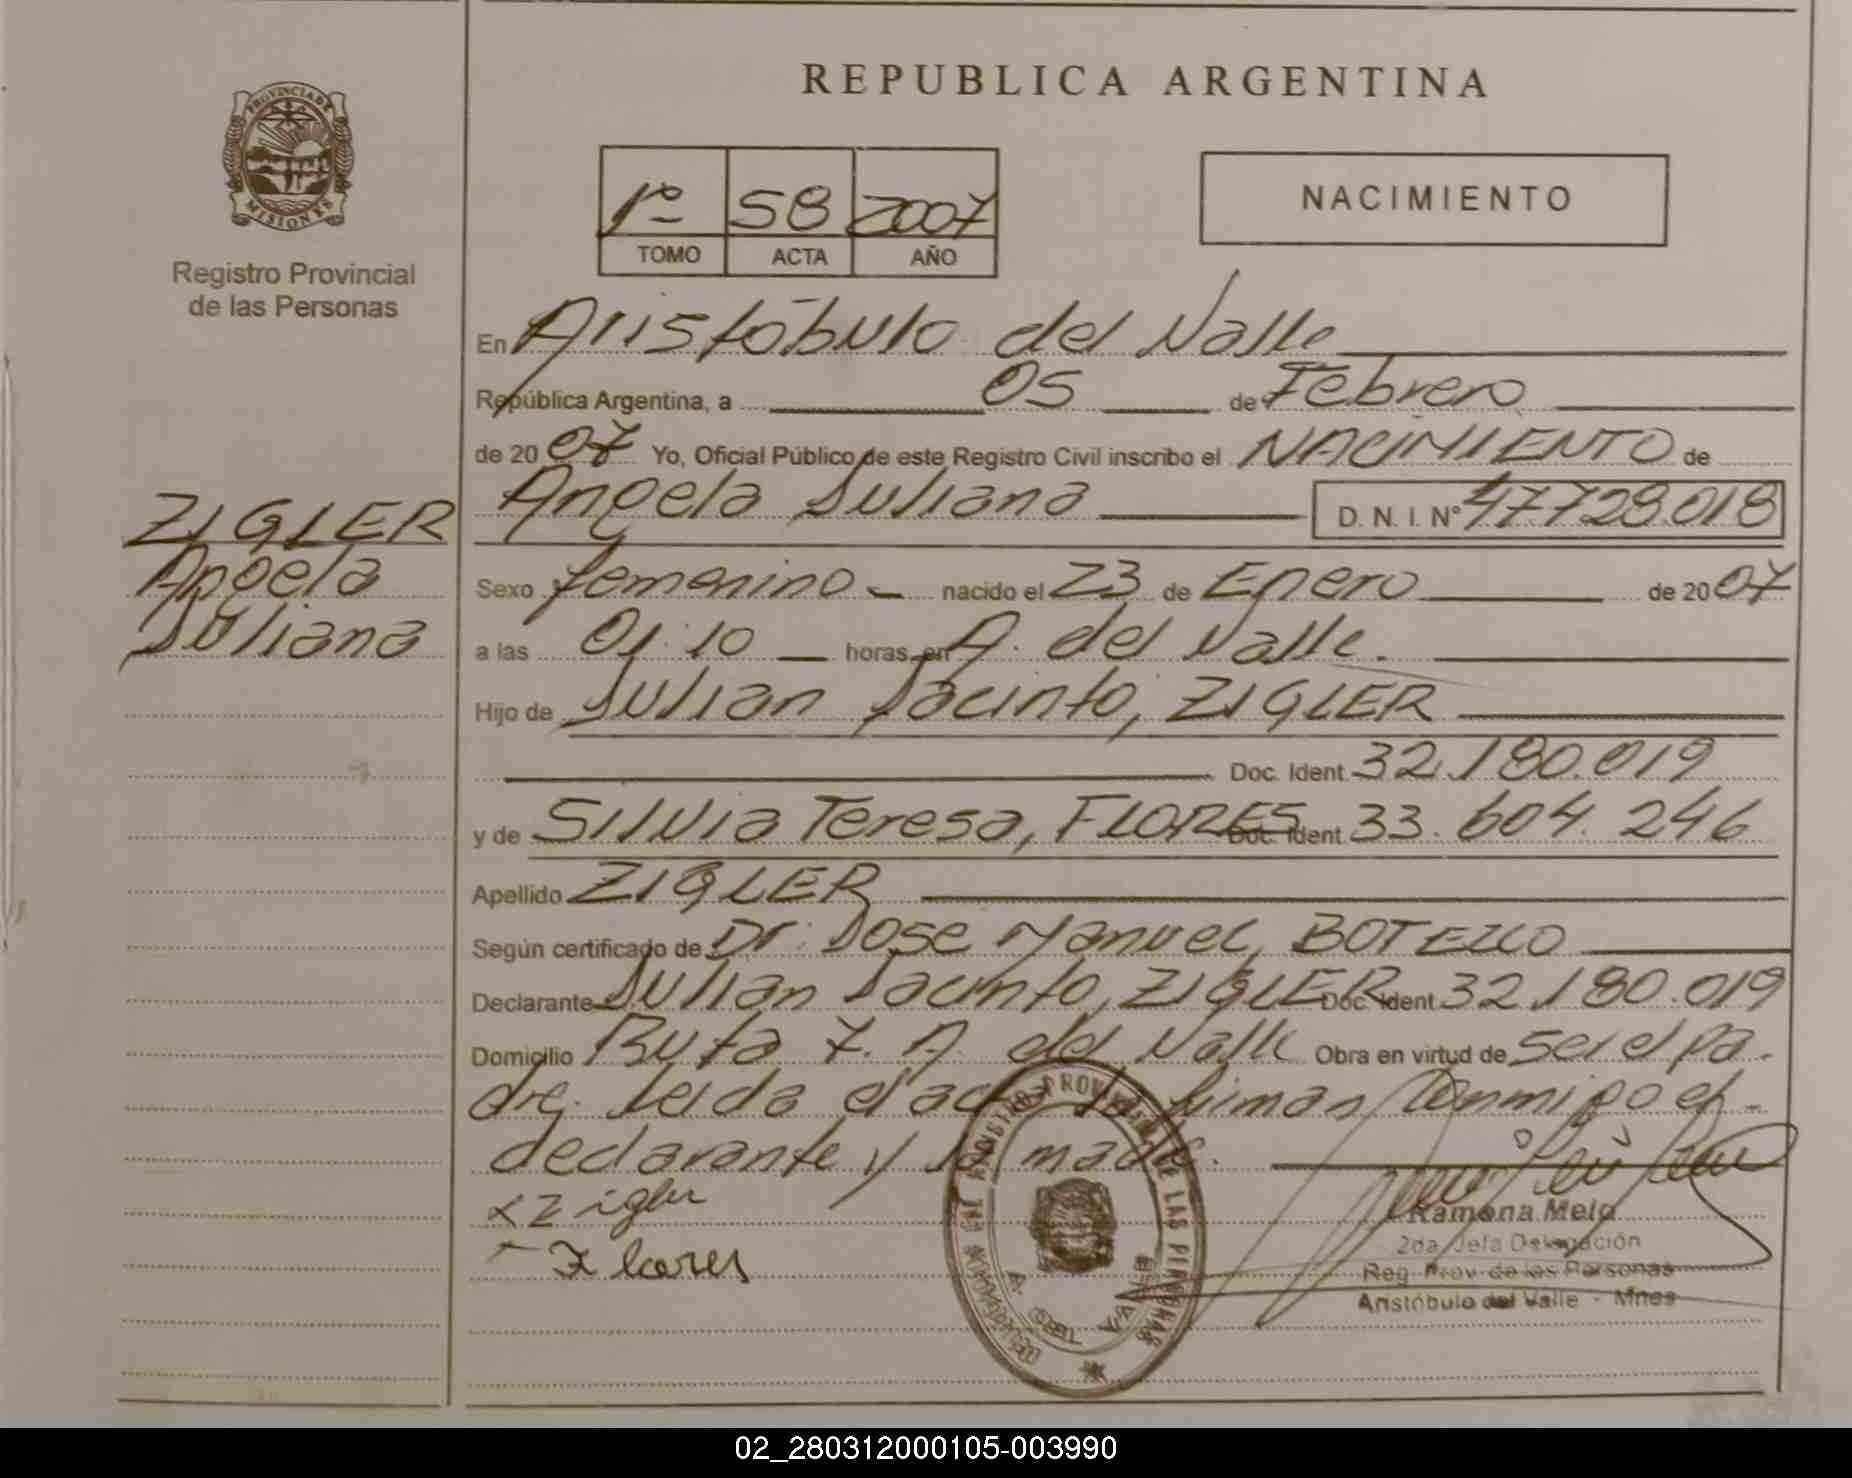 REPUBLICA ARGENTINA
PROVINCIA DE
MISIONES
Registro Provincial
de las Personas
1º 58 2007
TOMO ACTA AÑO
NACIMIENTO
En Aristóbulo del Valle
República Argentina, a 05 de Febrero
de 2007 Yo, Oficial Público de este Registro Civil inscribo el NACIMIENTO de
Angela Juliana D. N. I. Nº 47.728.018
ZIGLER
Angela
Juliana
Sexo femenino nacido el 23 de Enero de 2007
a las 01:10 horas, en A. del Valle.
Hijo de Julian Jacinto, ZIGLER
Doc. Ident. 32.180.019
y de Silvia Teresa, FLORES Doc. Ident. 33.604.246
Apellido ZIGLER
Según certificado de Dr. Jose Manuel, BOTELLO
Declarante Julian Jacinto, ZIGLER Doc. Ident. 32.180.019
Domicilio Ruta 7. A. del Valle Obra en virtud de ser el pa-
dre. Leida el acta la firman conmigo el
declarante y la madre.
x Zigler
Flores
REGISTRO PROVINCIAL DE LAS PERSONAS
A. DEL VALLE
Ramona Melo
2da. Jefa Delegación
Reg. Prov. de las Personas
Aristóbulo del Valle - Mnes
02_280312000105-003990